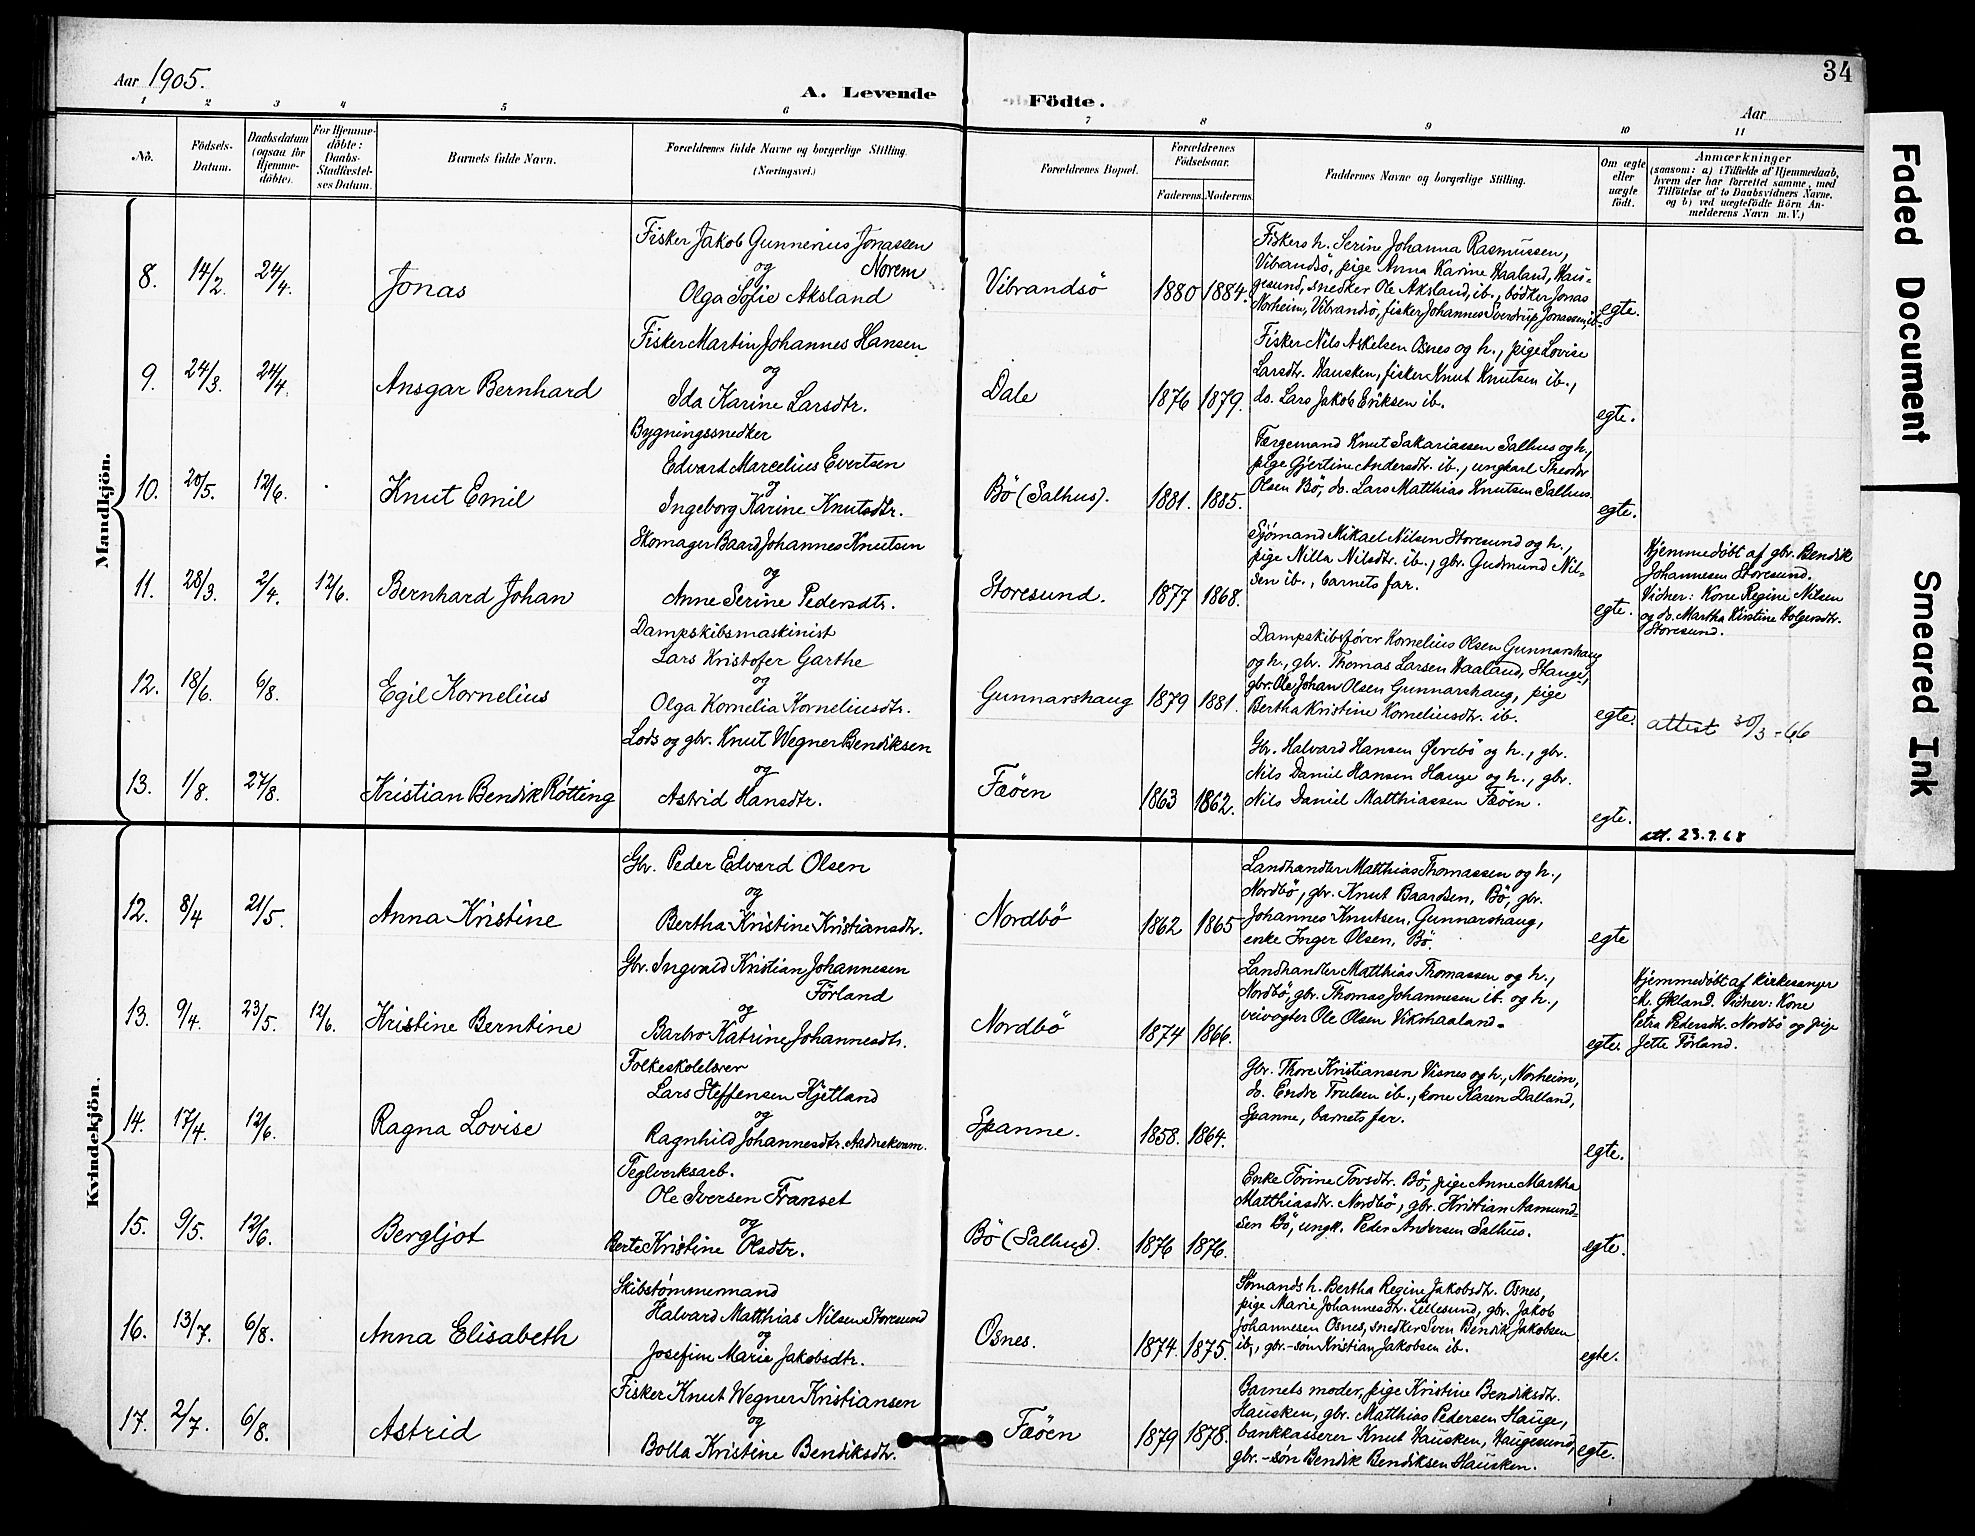 Aar 1905.
A. Levende Födte.
Aar
34
1 2 3 4 5 6 7 8 9 10 11
No.
Födsels-
Datum.
Daabsdatum
(ogsaa för
Hjemme-
döbte).
For Hjemme-
döbte:
Daabs-
Stadfæstel-
ses Datum.
Barnets fulde Navn.
Forældrenes fulde Navne og borgerlige Stilling.
(Næringsvei.)
Forældrenes Bopæl.
Forældrenes
Födselsaar.
Faderens. Moderens.
Faddernes Navne og borgerlige Stilling.
Om ægte
eller
uægte
födt.
Anmærkninger
(saasom: a) i Tilfælde af Hjemmedaab,
hvem der har forrettet samme, med
Tilföielse af to Daabsvidners Navne,
og b) ved uægtefödte Börn An-
melderens Navn m. V.)
Mandkjön.
8. 14/2. 24/4. Jonas
Fisker Jakob Gunnerius Jonassen
Norem
og
Olga Sofie Aksland
Vibrandsö 1880 1884.
Fiskers h. Serine Johanna Rasmussen,
Vibrandsö, pige Anna Karine Haaland, Hau-
gesund, snedker Ole Aksland, ib., bödker Jonas
Norheim, Vibrandsö, fisker Johannes Sverdrup Jonassen, ib.
egte.
9. 24/3. 24/4. Ansgar Bernhard
Fisker Martin Johannes Hansen
og
Ida Karine Larsdtr.
Dale 1876 1879.
Fisker Nils Askelsen Osnes og h., pige Lovise
Larsdtr. Hausken, fisker Knut Knutsen ib.,
do. Lars Jakob Eriksen ib.
egte.
10. 20/5. 12/6. Knut Emil
Bygningssnedker
Edvard Marcelius Evertsen
og
Ingeborg Karine Knutsdtr.
Bö (Salhus). 1881. 1885.
Færgemand Knut Sakariassen Salhus og h.,
pige Gjertine Andersdtr. ib., ungkarl Theodor
Olsen Bö, do. Lars Matthias Knutsen Salhus.
egte.
11. 28/3. 2/4. 12/6. Bernhard Johan
Skomager Baard Johannes Knutsen
og
Anne Serine Pedersdtr.
Storesund. 1877 1868.
Sjömand Mikael Nilsen Storesund og h.,
pige Nilla Nilsdtr. ib., gbr. Gudmund Nil-
sen ib., barnets far.
egte.
Hjemmedöbt af gbr. Bendik
Johannesen Storesund.
Vidner: Kone Regine Nilsen
og do. Martha Kirstine Holgersdtr.
Storesund.
12. 18/6. 6/8. Egil Kornelius
Dampskibsmaskinist
Lars Kristofer Garthe
og
Olga Kornelia Korneliusdtr.
Gunnarshaug 1879 1881.
Dampskibsförer Kornelius Olsen Gunnarshaug
og h., gbr. Thomas Larsen Haaland, Stange,
gbr. Ole Johan Olsen Gunnarshaug, pige
Bertha Kristine Korneliusdtr. ib.
egte.
attest 30/3-66
13. 1/8. 27/8. Kristian Bendik Røtting
Lods og gbr. Knut Wegner Bendiksen
og
Astrid Hansdtr.
Fæöen 1863 1862.
Gbr. Halvard Hansen Övrebö og h., gbr.
Nils Daniel Hansen Hauge og h., gbr.
Nils Daniel Matthiassen Fæöen.
egte.
att. 23.9.68
Kvindekjön.
12. 8/4 21/5. Anna Kristine
Gbr. Peder Edvard Olsen
og
Bertha Kristine Kristiansdtr.
Nordbö 1862 1865
Landhandler Matthias Thomassen og h.,
Nordbö, gbr. Knut Baardsen, Bö, gbr.
Johannes Knutsen, Gunnarshaug,
enke Inger Olsen, Bö.
egte
13. 9/4. 23/5. 12/6. Kristine Berntine
Gbr. Ingvald Kristian Johannesen
Förland
og
Barbro Katrine Johannesdtr.
Nordbö 1874 1866.
Landhandler Matthias Thomassen og h.,
Nordbö, gbr. Thomas Johannesen ib. og h.,
veivogter Ole Olsen Vikshaaland.
egte.
Hjemmedöbt af kirkesanger
M. Ökland. Vidner: Kone
Petra Pedersdtr. Nordbö og pige
Jette Förland.
14. 17/4. 12/6. Ragna Lovise
Folkeskolelærer
Lars Steffensen Kjetland
og
Ragnhild Johannesdtr. Aadnekvam.
Spanne. 1858. 1864.
Gbr. Thore Kristiansen Visnes og h., Norheim,
do. Endre Trulsen ib., kone Karen Dalland,
Spanne, barnets far.
egte.
15. 9/5. 12/6. Bergljot
Teglverksarb.
Ole Iversen Transet
og
Berte Kristine Olsdtr.
Bö (Salhus). 1876 1876.
Enke Torine Tovsdtr. Bö, pige Anne Martha
Matthiasdtr. Nordbö, gbr. Kristian Aamund-
sen Bö, ungk. Peder Andersen Salhus.
egte.
16. 13/7. 6/8. Anna Elisabeth
Skibstömmermand
Halvard Matthias Nilsen Storesund
og
Josefine Marie Jakobsdtr.
Osnes. 1874. 1875.
Sömands h. Bertha Regine Jakobsdtr. Osnes,
pige Marie Johannesdtr. Lillesund, gbr. Jakob
Johannesen Osnes, snedker Sven Bendik Jakobsen
ib., gbr.-sön Kristian Jakobsen ib.
egte.
17. 2/7. 6/8. Astrid
Fisker Knut Wegner Kristiansen
og
Bolla Kristine Bendiksdtr.
Fæöen 1879 1878.
Barnets moder, pige Kristine Bendiksdtr.
Hausken, gbr. Matthias Pedersen Hauge,
bankkasserer Knut Hausken, Haugesund,
gbr.-sön Bendik Bendiksen Hausken.
egte.
Faded Document
Smeared Ink